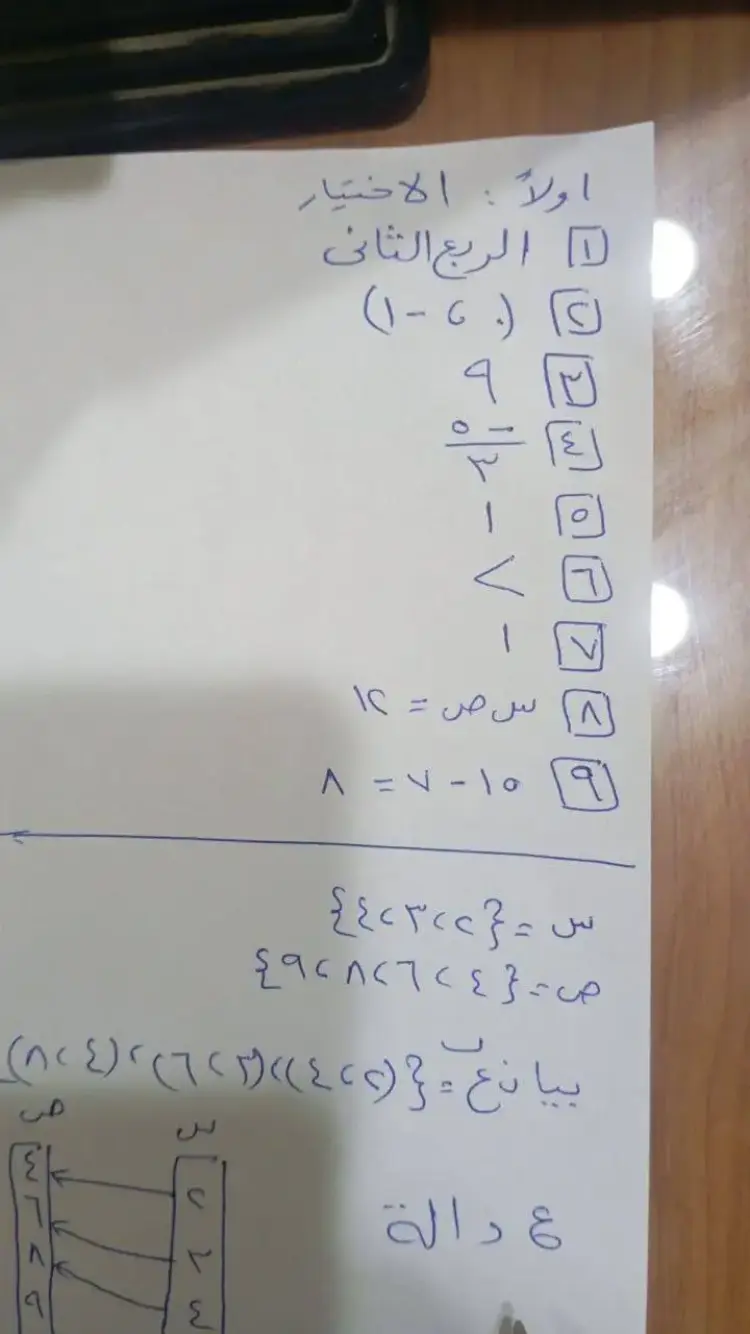 اولاً : الاختيار
١ الربع الثانى
٢ (٠ ، -١)
٣ ٩
٤ ١٥/٣
٥ -
٦ ٧
٧ -
٨ س ص = ١٢
٩ ١٥ - ٧ = ٨
س = {٢ ، ٣ ، ٤}
ص = {٤ ، ٦ ، ٨ ، ٩}
بيان ع = {(٢ ، ٤) ، (٣ ، ٦) ، (٤ ، ٨)
ع دالة
س ص
٢ ٤
٣ ٦
٤ ٨
٩